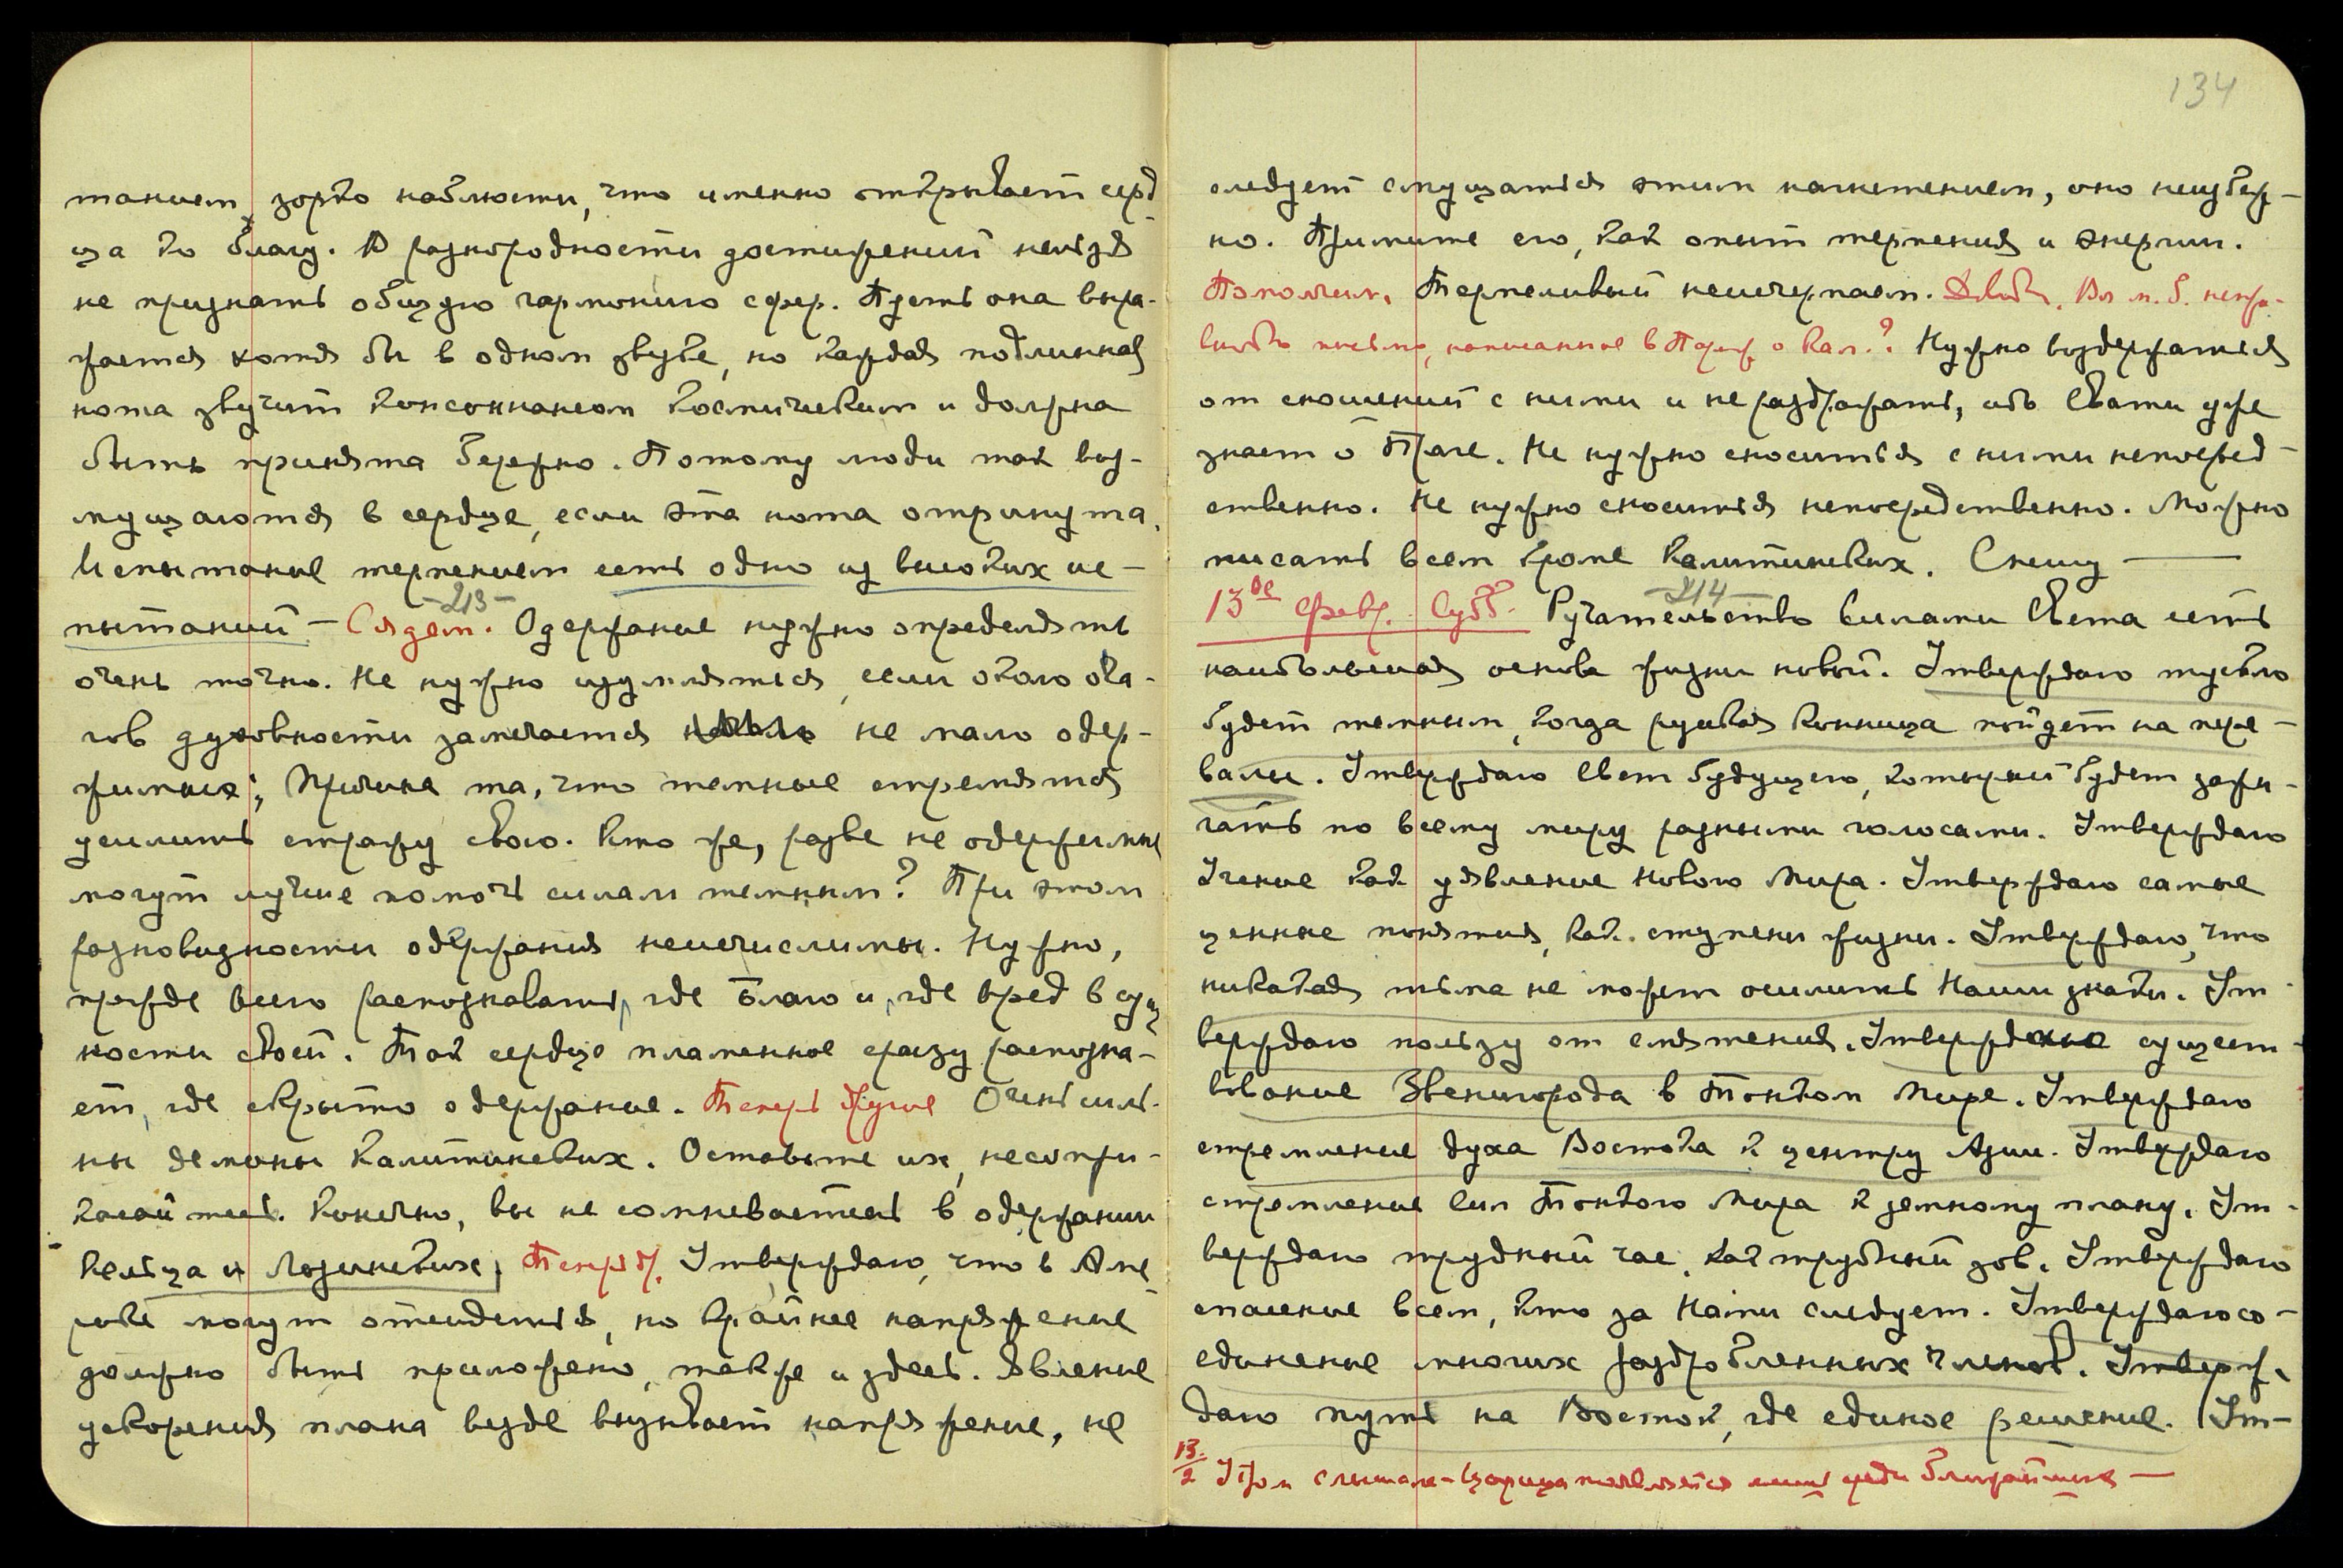 танием, зорко наблюсти, что именно открывает серд-
ца ко благу. В разнородности достижений нельзя
не признать общую гармонию сфер. Пусть она выра-
жается хотя бы в одном звуке, но каждая подлинная
нота звучит консонансом космическим и должна
быть принята бережно. Потому люди так воз-
мущаются в сердце, если эта нота отринута.
Испытание терпением есть одно из высоких ис-
-213-
пытаний — Сядем. Одержание нужно определять
очень точно. Не нужно изумляться, если около оча-
гов духовности замечается не мало одер-
жимых; Причина та, что темные стремятся
усилить стражу свою. Кто же, разве не одержимые
могут лучше помочь силам темным? При этом
разновидности одержания неисчислимы. Нужно,
прежде всего распознавать, где благо и, где вред в сущ
ности своей. Так сердце пламенное сразу распозна-
ет, где скрыто одержание. Теперь другое Очень силь-
ны демоны Калитинских. Оставьте их, несопри-
касайтесь. Конечно, вы не сомневаетесь в одержании
Кельца и Лозинских; Теперь д. Утверждаю, что в Аме-
рике могут отсидеться, но крайнее напряжение
должно быть приложено, также и здесь. Явление
ускорения плана везде вызывает напряжение, не
134
следует смущаться этим нагнетением, оно неизбеж-
но. Примите его, как опыт терпения и энергии.
Помолчим. Терпеливый неисчерпаем. Вл м. б. непра-
вильно письмо, написанное в Париж о Кал.? Нужно воздержаться
от сношений с ними и не раздражать, ибо Свати уже
знает о Праге. Не нужно сноситься с ними непосред-
ственно. Не нужно сноситься непосредственно. Можно
писать всем кроме Калитинских. Спешу —
-214-
13ое февр. Субб. Ручательство Силами Света есть
наибольшая основа жизни новой. Утверждаю тускло
будет темным, когда русская конница пойдет на пере-
валы. Утверждаю Свет будущего, который будет зажи-
гать по всему миру разными голосами. Утверждаю
Учение как уявление Нового Мира. Утверждаю самые
ценные понятия, как ступени жизни. Утверждаю, что
никакая тьма не может осилить Наши знаки. Ут-
верждаю пользу от смятения. Утверждено сущест-
вование Звенигорода в Тонком Мире. Утверждаю
стремление духа Востока к центру Азии. Утверждаю
стремление Сил Тонкого Мира к земному плану. Ут-
верждаю трудный час, как трубный зов. Утверждаю
спасение всем, кто за Нами следует. Утверждаю со-
единение многих раздробленных членов. Утверж-
даю путь на Восток, где единое решение. Ут-
13/2 Утром слышала — Царица появляется лишь среди ближайших —